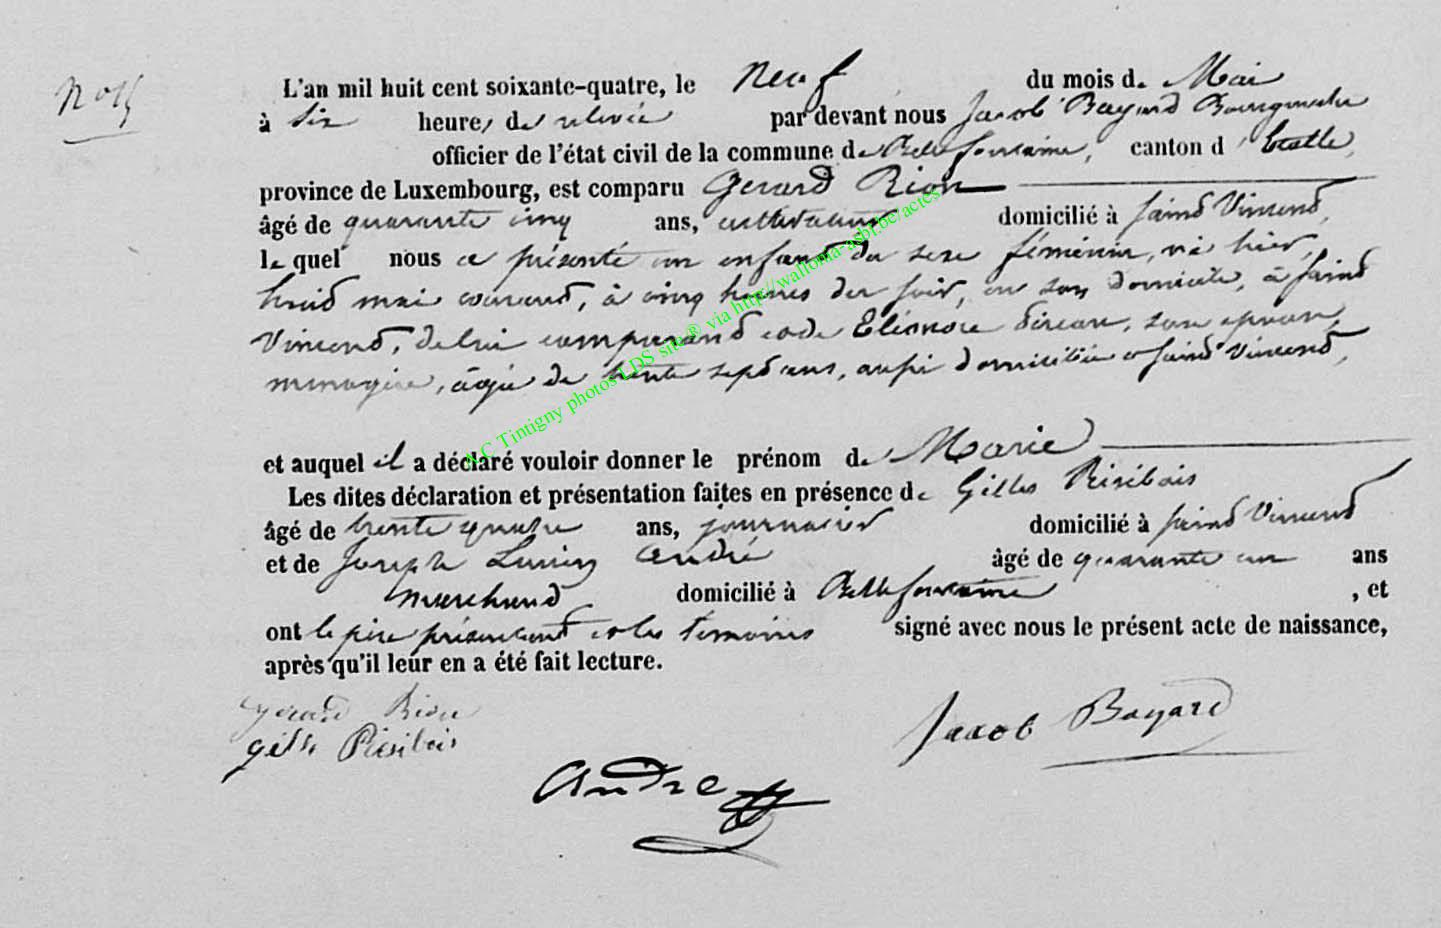 L'an mil huit cent soixante-quatre, le neuf du mois de Mai
à six heures de relevée par devant nous Jacob Bayard Bourgmestre
officier de l'état civil de la commune de Bellefontaine, canton d'Etalle,
province de Luxembourg, est comparu Gerard Rion
âgé de quarante cinq ans, cultivateur domicilié à Saint Vincent,
lequel nous a présenté un enfant du sexe féminin, né hier,
huit mai courant, à cinq heures du soir, en son domicile, à Saint
Vincent, de lui comparant et de Elémore, son épouse,
menagère, âgée de trente sept ans, aussi domiciliée à Saint Vincent,
et auquel il a déclaré vouloir donner le prénom de Marie
Les dites déclaration et présentation faites en présence de Gilles Piesibois
âgé de trente quatre ans, journalier domicilié à Saint Vincent
et de Joseph André âgé de quarante un ans
marchand domicilié à Bellefontaine, et
ont le père présentant et les temoins signé avec nous le présent acte de naissance,
après qu'il leur en a été fait lecture.
Gerard Rion
Gille Piesibois
Jacob Bayard
André
A.C Tintigny photos LDS site® via http://wallonia-asbl.be/actes